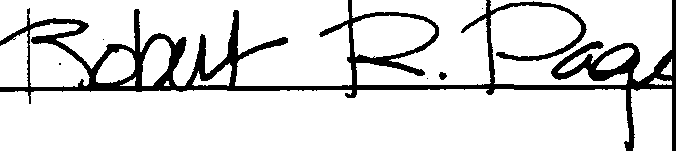 Robert R. Page